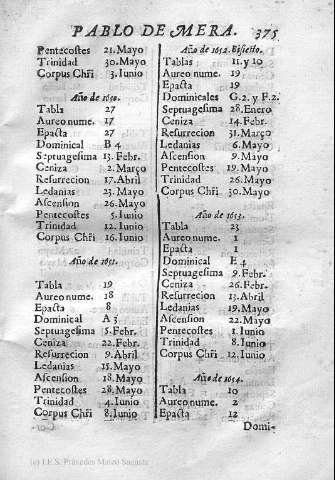 PABLO DE MERA. 375
Pentecostes 21. Mayo
Trinidad 30. Mayo
Corpus Chri 3. Iunio
Año de 1650.
Tabla 27
Aureo nume. 17
Epacta 27
Dominical B 4
Septuagesima 13. Febr.
Ceniza 2. Março
Resurrecion 17. Abril
Ledanias 23. Mayo
Ascension 26. Mayo
Pentecostes 5. Iunio
Trinidad 12. Iunio
Corpus Chri 16. Iunio
Año de 1651.
Tabla 19
Aureo nume. 18
Epacta 8
Dominical A 3
Septuagesima 5. Febr.
Ceniza 22. Febr.
Resurrecion 9. Abril
Ledanias 15. Mayo
Ascension 18. Mayo
Pentecostes 28. Mayo
Trinidad 4. Iunio
Corpus Chri 8. Iunio
Año de 1652. Bisiesto.
Tablas 11. y 10
Aureo nume. 19
Epacta 19
Dominicales G. 2. y F. 2.
Septuagesima 28. Enero
Ceniza 14. Febr.
Resurreccion 31. Março
Ledanias 6. Mayo
Ascension 9. Mayo
Pentecostes 19. Mayo
Trinidad 26. Mayo
Corpus Chri 30. Mayo
Año de 1653.
Tabla 23
Aureo nume. 1
Epacta 1
Dominical E 4
Septuagesima 9. Febr.
Ceniza 26. Febr.
Resurrecion 13. Abril
Ledanias 19. Mayo
Ascension 22. Mayo
Pentecostes 1. Iunio
Trinidad 8. Iunio
Corpus Chri 12. Iunio
Año de 1654.
Tabla 10
Aureo nume. 2
Epacta 12
Domi-
(c) I.E.S. Práxedes Mateo Sagasta